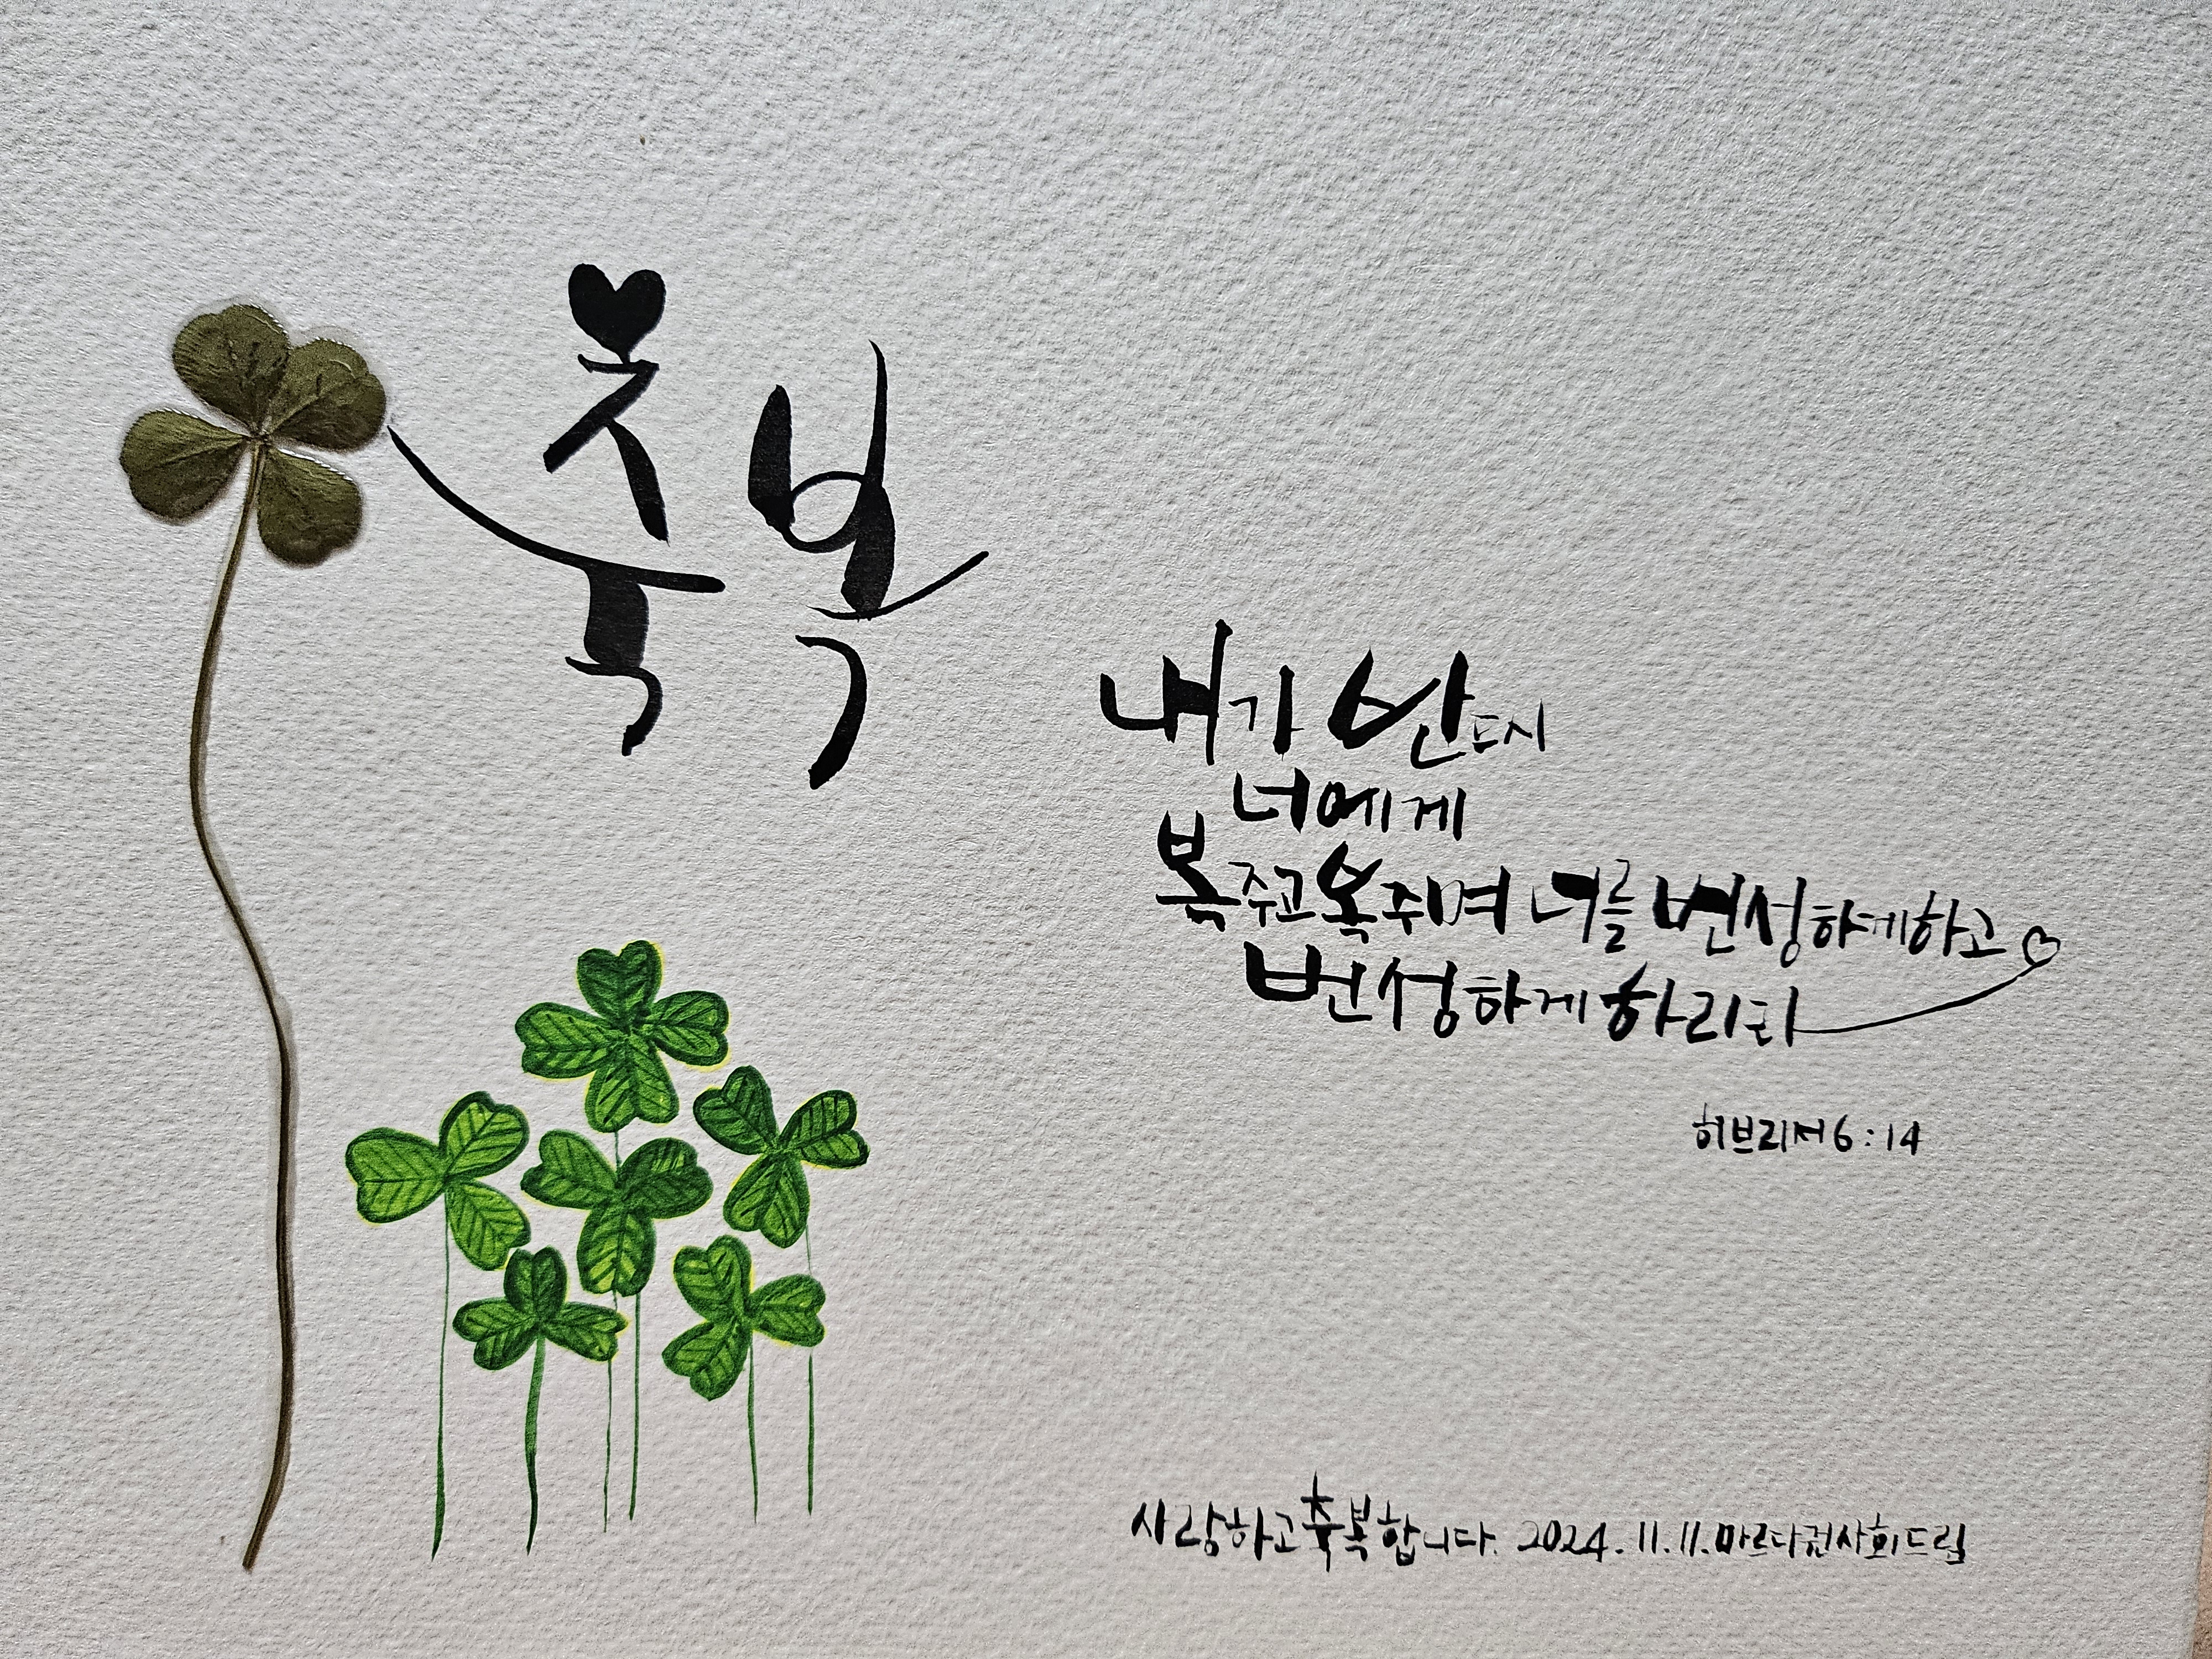 축복
내가 반드시
너에게
복주고복주며 너를 번성하게하고
번성하게 하리라
히브리서 6:14
사랑하고 축복합니다. 2024. 11. 11. 마르다권사회드림